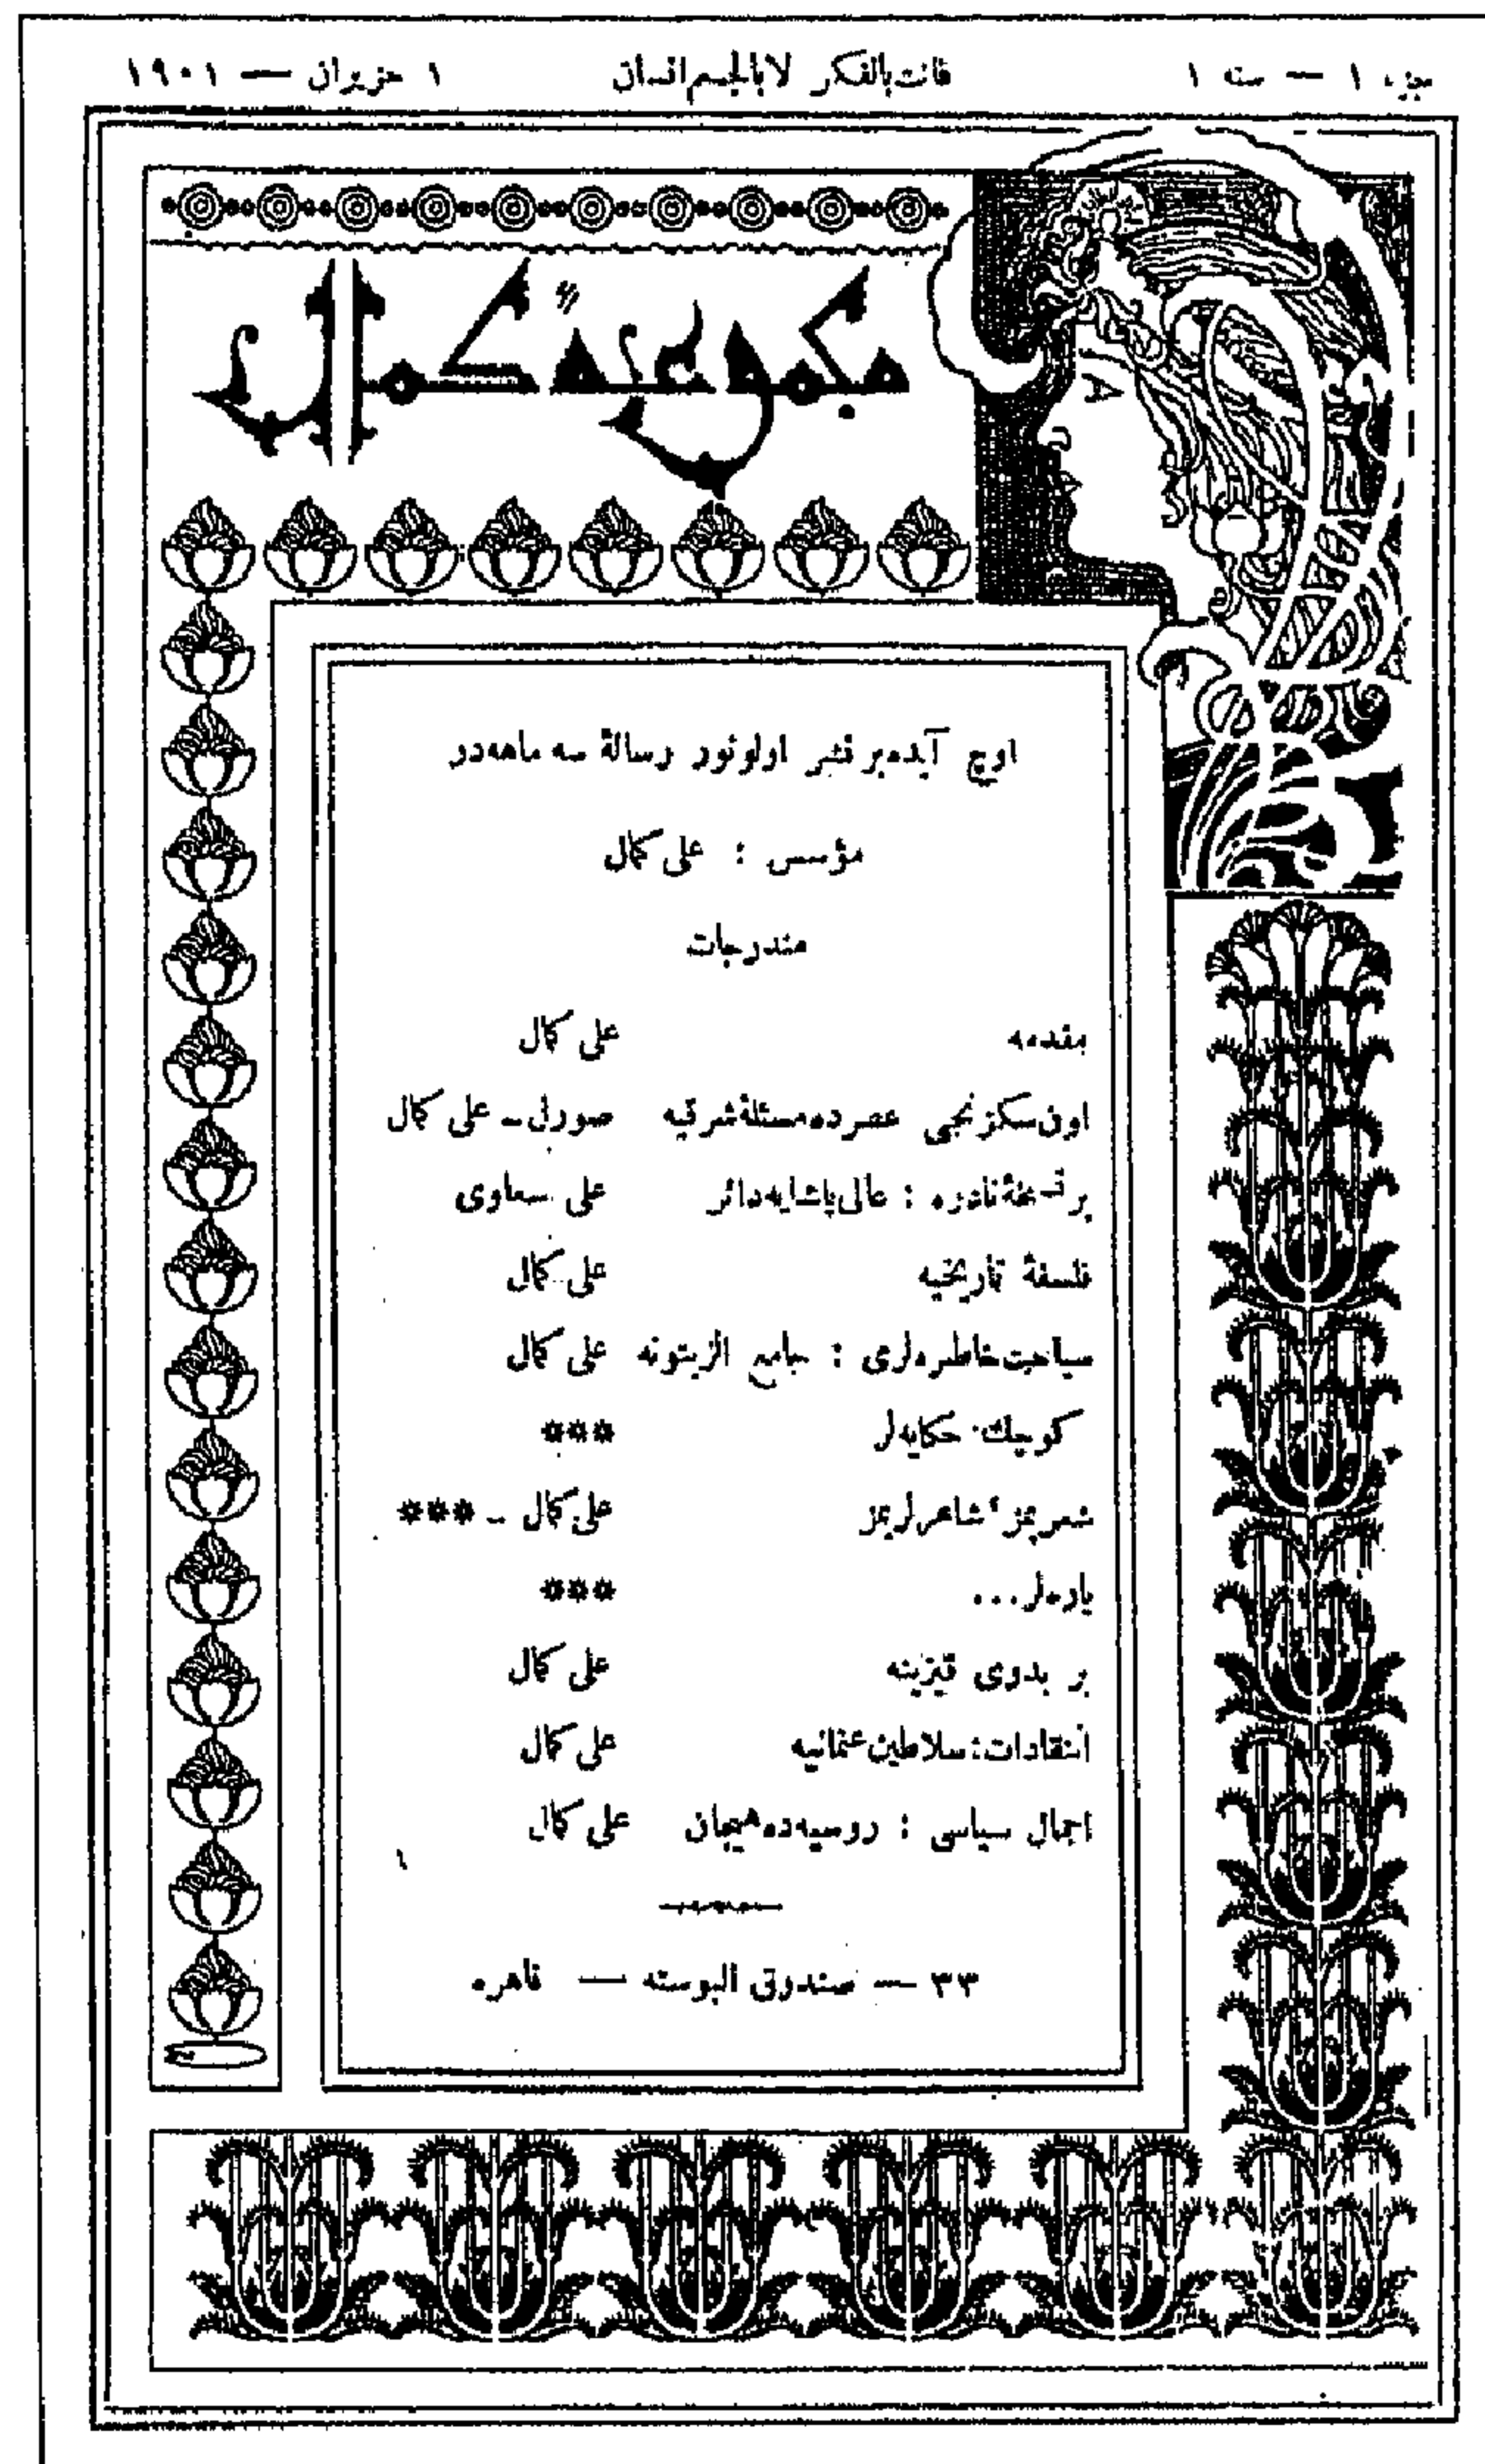 جزء ١ — سنه ١
فانت بالفكر لا بالجسم انسان
١ حزيران — ١٩٠١
مجموعهٔ كمال
اوچ آيده بر نشر اولونور رسالهٔ سه ماهه در
مؤسس : على كمال
مندرجات
مقدمه على كمال
اون سكزنجى عصرده مسئلهٔ شرقيه صورل ـ على كمال
بر نسخهٔ نادره : عالى پاشايه دائر على سعاوى
فلسفهٔ تاريخيه على كمال
سياحت خاطره لرى : جامع الزيتونه على كمال
كوچك حكايه لر ***
شعريمز، شاعرلريمز على كمال ـ ***
ياره لر... ***
بر بدوى قيزينه على كمال
انتقادات : سلاطين عثمانيه على كمال
اجمال سياسى : روسيه ده هيجان على كمال
٣٣ — صندوق البوسته — قاهره